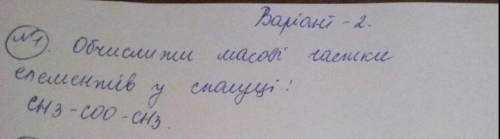 Варіант - 2.
№1. Обчислити масові частки
елементів у сполуці:
CH3-COO-CH3.